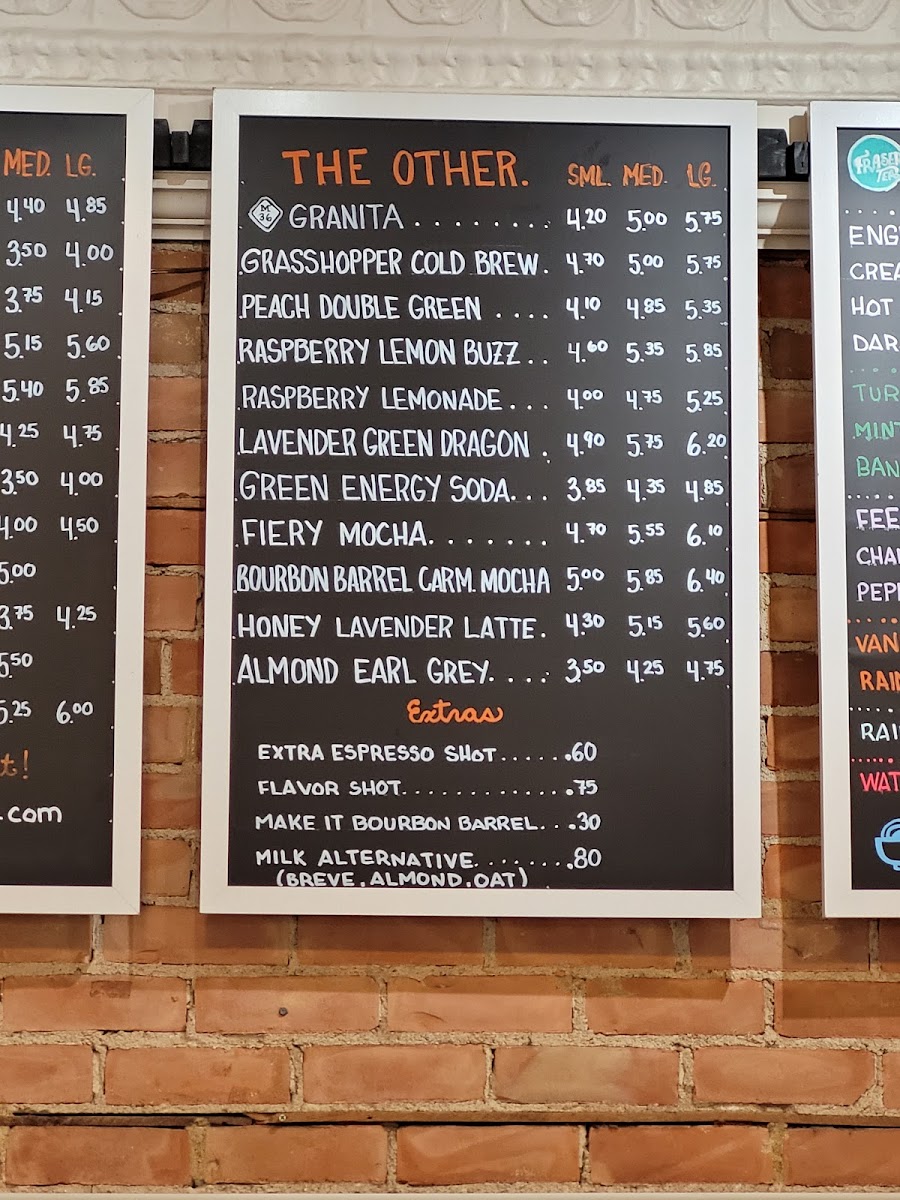 MED. LG.
4.40 4.85
3.50 4.00
3.75 4.15
5.15 5.60
5.40 5.85
4.25 4.75
3.50 4.00
4.00 4.50
5.00
3.75 4.25
5.50
5.25 6.00
t!
.com
THE OTHER. SML. MED. LG.
M 36 GRANITA ........ 4.20 5.00 5.75
GRASSHOPPER COLD BREW. 4.70 5.00 5.75
PEACH DOUBLE GREEN .... 4.10 4.85 5.35
RASPBERRY LEMON BUZZ .. 4.60 5.35 5.85
RASPBERRY LEMONADE ... 4.00 4.75 5.25
LAVENDER GREEN DRAGON . 4.90 5.75 6.20
GREEN ENERGY SODA... 3.85 4.35 4.85
FIERY MOCHA....... 4.70 5.55 6.10
BOURBON BARREL CARM. MOCHA 5.00 5.85 6.40
HONEY LAVENDER LATTE. 4.30 5.15 5.60
ALMOND EARL GREY.... 3.50 4.25 4.75
Extras
EXTRA ESPRESSO SHOT......60
FLAVOR SHOT.............75
MAKE IT BOURBON BARREL...30
MILK ALTERNATIVE........80
(BREVE, ALMOND, OAT)
FRASER
TER
ENG
CREA
HOT
DAR
TUR
MINT
BAN
FEE
CHAI
PEPP
VAN
RAIN
RAI
WAT